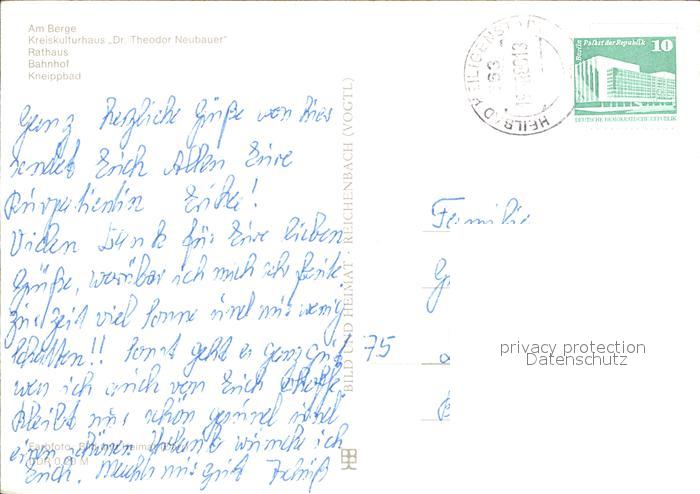 Am Berge
Kreiskulturhaus „Dr. Theodor Neubauer"
Rathaus
Bahnhof
Kneippbad
Ganz herzliche Grüße von hier
sendet Euch Allen Eure
Kurpatientin
Vielen Dank für Eure lieben
Grüße, worüber ich mich sehr freute
zur Zeit viel Sonne und nur wenig
Schatten!! Sonst geht es ganz gut
was ich auch von Euch hoffe
Bleibt nur schön gesund und
einen schönen Urlaub wünsche ich
Euch. Macht's gut
Farbfoto:
DDR 0,20 M
BILD UND HEIMAT · REICHENBACH (VOGTL)
HEILBAD HEILIGENSTADT
Berlin Palast der Republik
10
DEUTSCHE DEMOKRATISCHE REPUBLIK
Familie
G
75
privacy protection
Datenschutz